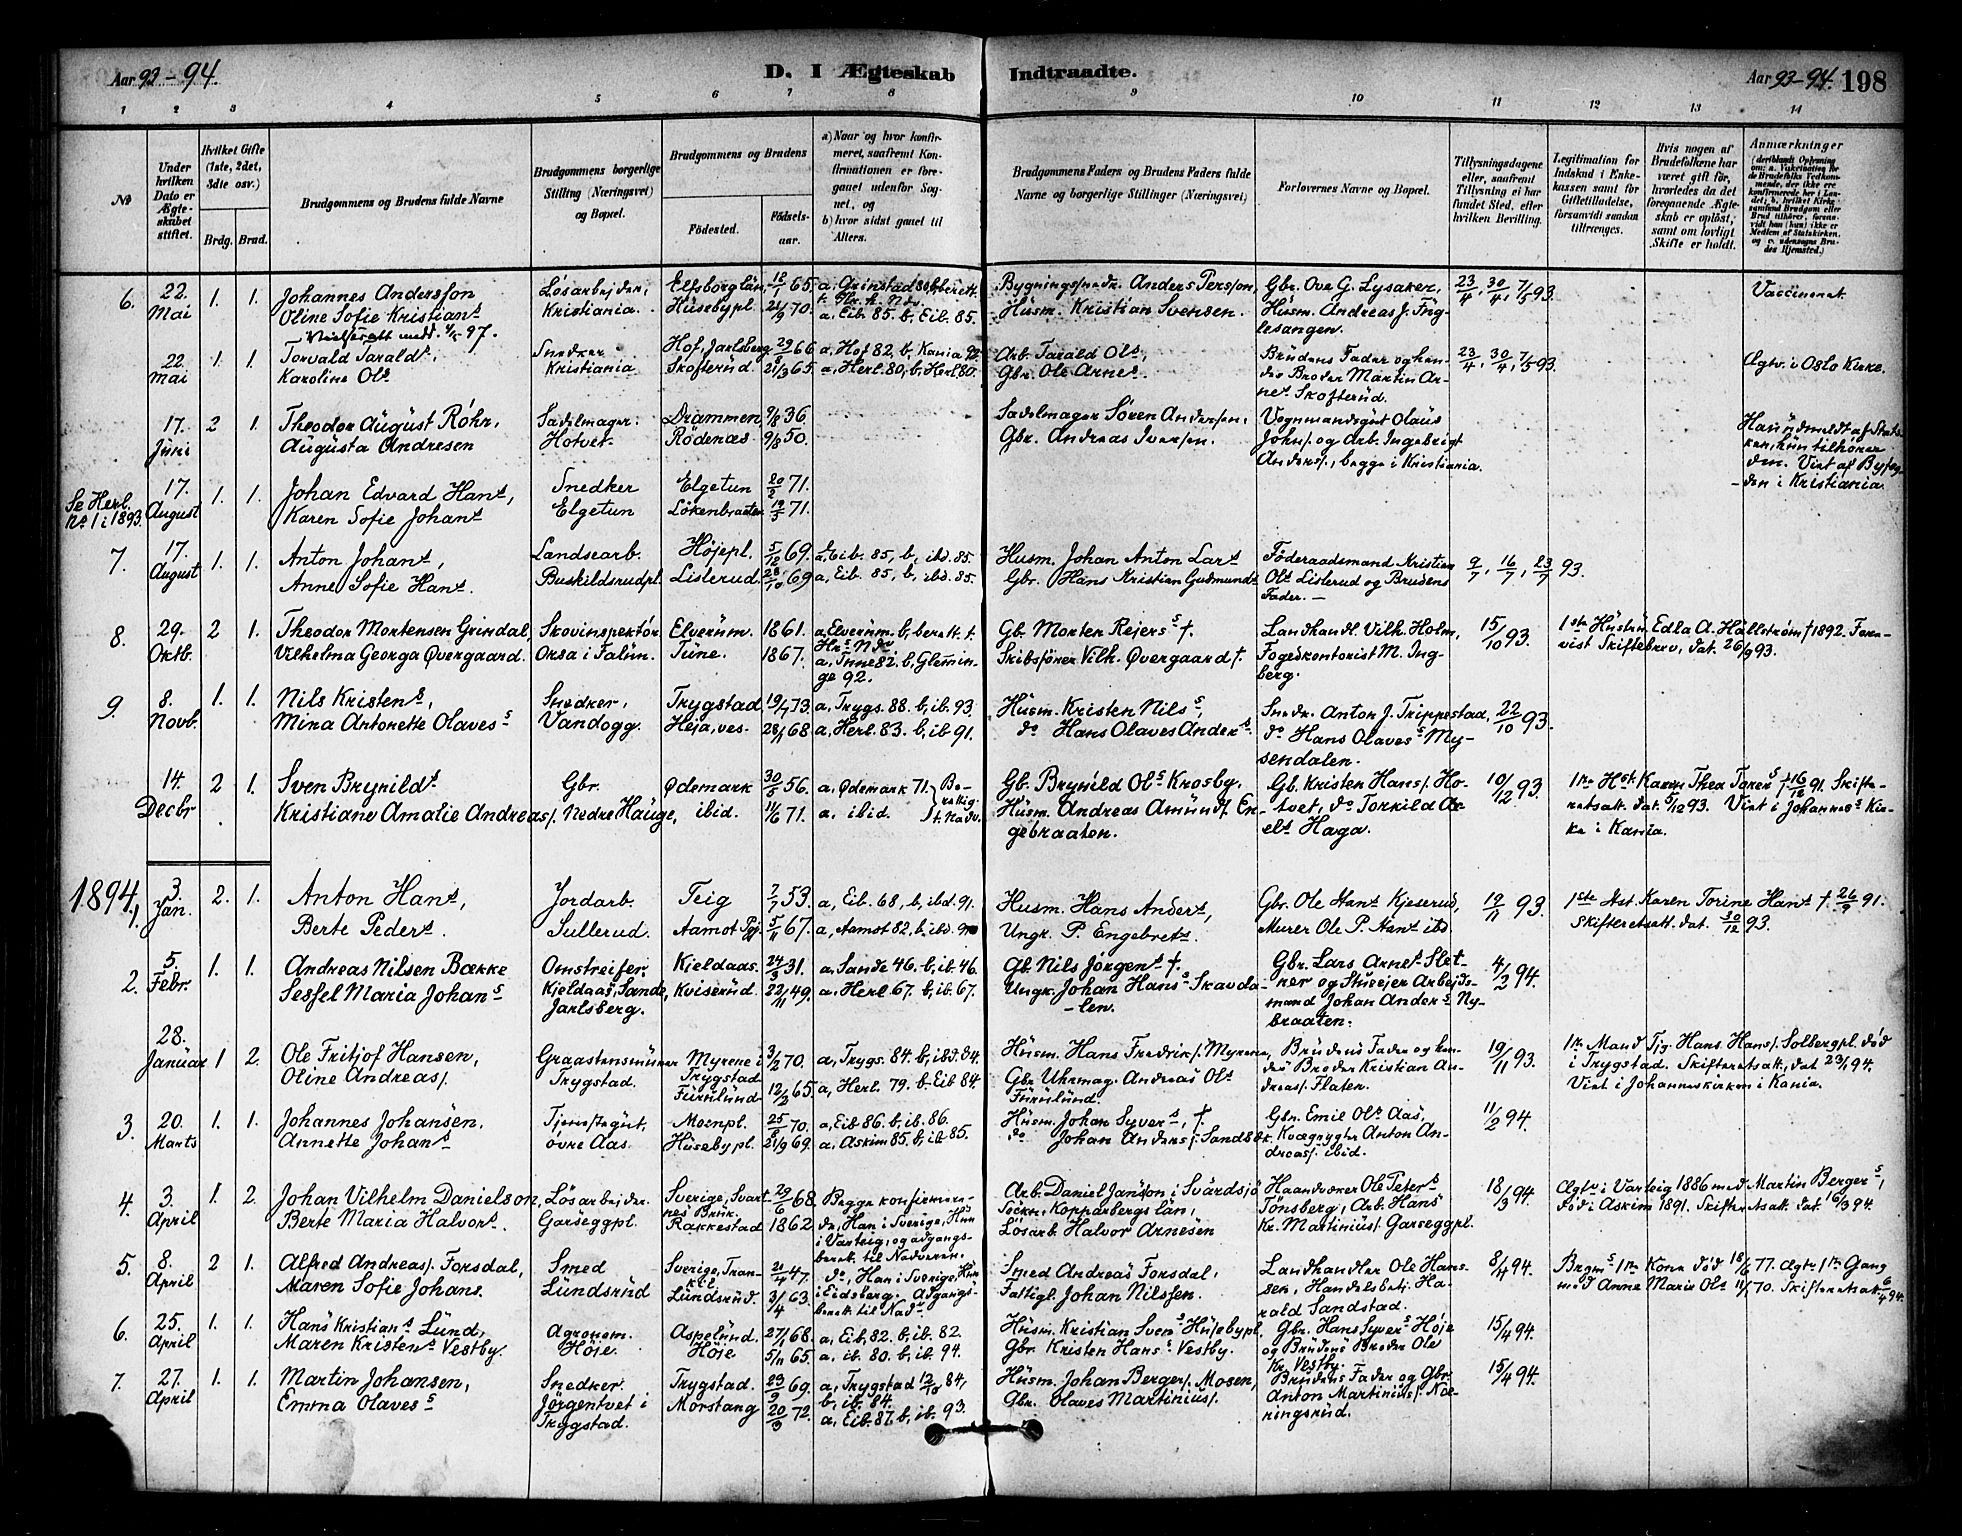 Aar 93-94.
D. I Ægteskab Indtraadte.
Aar 93-94. 198
1 2 3 4 5 6 7 8 9 10 11 12 13 14
No
Under hvilken Dato er Ægteskabet stiftet.
Hvilket Gifte (1ste, 2det, 3die osv.)
Brdg. Brud.
Brudgommens og Brudens fulde Navne
Brudgommens borgerlige Stilling (Næringsvei) og Bopæl.
Brudgommens og Brudens
Födested.
Födselsaar.
a) Naar og hvor konfirmeret, saafremt Konfirmationen er foregaaet udenfor Sognet, og
b) hvor sidst gaaet til Alters.
Brudgommens Faders og Brudens Faders fulde Navne og borgerlige Stillinger (Næringsvei)
Forlovernes Navne og Bopæl.
Tillysningsdagene eller, saafremt Tillysning ei har fundet Sted, efter hvilken Bevilling.
Legitimation for Indskud i Enkekassen samt for Giftetilladelse, forsaavidt saadan tiltrænges.
Hvis nogen af Brudefolkene har været gift för, hvorledes da det foregaaende Ægteskab er oplöst, samt om lovligt Skifte er holdt.
Anmærkninger
6. 22. Mai 1. 1. Johannes Andersson Løsarbejder, Elfsborg län, 12/1 65. a, Grinstad
Oline Sofie Kristians Kristiania. Husebypl. 21/9 70. a, Eib. 85. b, Eib. 85.
Bygningssnedk. Anders Persson, Gbr. Ove G. Lysaker, 23/4, 30/4, 7/5 93. Vaccineret.
Husm. Kristian Svensen. Husm. Andreas J. Fuglesangen.
22. Mai 1. 1. Torvald Taralds, Snedker Hof, Jarlsberg 29/8 66 a, Hof 82, b, Kania 92.
Karoline Ols Kristiania Skofterud. 21/3 65. a, Herl. 80, b, Herl 80.
Arb. Tarald Ols, Brudens Fader og hendes Broder Martin Arnes. Skofterud. 23/4, 30/4, 7/5 93. Ægtv. i Oslo Kirke.
Gbr. Ole Arnes.
17. Juni 2 1. Theodor August Röhr, Sadelmager. Drammen, 9/8 36.
Augusta Andresen Hotvet. Rödenæs 9/8 50.
Sadelmager Sören Andersen, Vognmandsgut Olaus Johns. og Arb. Ingebrigt Anders., begge i Kristiania.
Gbr. Andreas Iversen.
Han udmeldt af Statskirken, hun tilhörer den. Viet af Byfogden i Kristiania.
Se Herl. No 1 i 1893. 17. August 1. 1. Johan Edvard Hans, Snedker Elgetun 20/2 71.
Karen Sofie Johans Elgetun Lökenbraaten 19/3 71.
7. 17. August 1. 1. Anton Johans, Landsearb. Höjepl. 5/12 69. a, Eib. 85, b, ibd. 85.
Anne Sofie Hans. Buskildsrudpl. Listerud. 28/10 69 a, Eib. 85, b, ibd. 85.
Husm. Johan Anton Lars Föderaadsmand Kristian Ols Listerud og Brudens Fader. 9/7, 16/7, 23/7 93.
Gbr. Hans Kristian Gudmunds
8. 29. Oktb. 2 1. Theodor Mortensen Grindal, Skovinspektör Elverum. 1861. a, Elverum. b, berett. t. Hrs Ndv
Vilhelma Georga Øvergaard. Orsa i Falun. Tune. 1867. a, Tune 82, b, Glemminge 92.
Gb. Morten Rejers †. Landhandl. Vilh. Holm, 15/10 93. 1ste Hustru Edla A. Hällström † 1892. Forevist Skiftebrev, dat. 26/9 93.
Skibsförer Vilh. Øvergaard †. Fogedkontorist M. Ingberg.
9. 8. Novb. 1. 1. Nils Kristens, Snedker, Trygstad, 19/7 73. a, Trygs. 88. b, ib. 93.
Mina Antonette Olaves Vandogg. Heja, ves. 28/1 68 a, Herl. 83. b, ib 91.
Husm. Kristen Nils, Snedk. Anton J. Trippestad, 22/10 93.
do Hans Olaves Anders. do Hans Olaves Mysendalen.
14. Decbr 2 1. Sven Brynilds Gbr. Ødemark 30/5 56. a, Ødemark 71.
Kristiane Amalie Andreas. Nedre Hauge, ibid. 11/6 71. a. ibid.
Gb. Brynild Ols Krosby. Gb. Kristen Hans. Hotvet, do Torkild Axels Haga. 10/12 93.
Husm. Andreas Amunds. Engebraaten.
1ste Hst Karen Thea Torers † 16/12 91. Skifteretsatt. dat. 5/12 93. Viet i Johannes Kirke i Kania.
1894. 1. 3. Jan. 2. 1. Anton Hans, Jordarb. Teig 7/7 53. a, Eib. 68, b, ibd. 91.
Berte Peders. Sullerud. Aamot 5/11 67. a, Aamot 82, b, ibd.
Husm. Hans Anders, Gbr. Ole Hans Kjeserud, 19/11 93. 1ste Hst. Karen Torine Hans † 26/9 91. Skifteretsatt. dat. 30/12 93.
Ungk. P. Engebrets. Murer Ole P. Hans ibd.
2. 5. Febr. 1. 1. Andreas Nilsen Bække Omstreifer. Kjeldaas. 24/3 31. a, Sande 46. b, ib. 46.
Sessel Maria Johans Kjeldaas, Sande, Jarlsberg. Kviserud. 22/11 49. a. Herl. 67. b, ib. 67.
Gb. Nils Jörgens †. Gbr. Lars Arnes Sletner og Stueejer Arbejdsmand Johan Anders Nybraaten. 4/2 94.
Ungk. Johan Hans Skavdalen.
28. Januar 1 2. Ole Fritjof Hansen, Graastensmurer Myrene i Trygstad 3/2 70. a, Trygs. 84. b, ibd. 84.
Oline Andreas. Trygstad. Furulund 12/3 65. a, Herl. 79. b. Eib 84.
Husm. Hans Fredriks. Myrene, Brudens Fader og hendes Broder Kristian Andreas. Flaten. 19/11 93.
Gbr. Uhrmag. Andreas Ols Furulund.
1ste Mand Tjg. Hans Hans. Solbergpl. död i Trygstad. Skifteretsatt. dat 23/1 94. Viet i Johanneskirken i Kania.
3. 20. Marts 1. 1. Johannes Johansen. Tjenestegut, Moenpl. 25/8 70. a, Eib 86. b, ib. 86.
Annette Johans övre Aas. Husebypl. 21/9 69. a. Askim 85. b, ib 85.
Husm. Johan Syvers, † Gbr. Emil Ols Aas, 11/2 94.
do Johan Anders. Sandbæk. Kvægrygter Anton Andreas. ibid.
4. 3. April 1. 2. Johan Vilhelm Danielson, Løsarbejder. Sverige, Svartnes Bruk. 29/6 68. Begge konfirmerede, Han i Sverige, Hun i Varteig, og adgangsberett. til Nadveren.
Berte Maria Halvors. Garseggpl. Rakkestad 1862.
Arb. Daniel Jansson i Svärdsjö Socken, Kopparbergs län, Haandværker Ole Peters Tönsberg, Arb. Hans Kr. Martinius. Garseggpl. 18/3 94.
Løsarb. Halvor Arnesen
Ægtv. i Varteig 1886 med Martin Bergers, död i Askim 1891. Skifteretsatt. dat. 16/3 94.
5. 8. April 2 1. Alfred Andreas. Forsdal, Smed Sverige, Trankil 21/4 47. do, Han i Sverige, Hun i Eidsberg. Adgangsberett. til Nadv.
Maren Sofie Johans. Lundsrud Lundsrud. 3/4 63.
Smed Andreas Forsdal, Landhandler Ole Hansen, Handelsbetj. Harald Sandstad. 8/4 94.
Fattigl. Johan Nilssen.
Brgms 1ste Kone död 18/6 77. Ægtv. 1ste Gang med Anne Marie Ols 11/1 70. Skifteretsatt. 6/4 94.
6. 25. April 1. 1. Hans Kristians Lund, Agronom. Aspelund. 27/1 68. a, Eib. 82. b, ib. 82.
Maren Kristens Vestby. Höje. Höje 5/11 65. a. ib. 80. b, ib. 94.
Husm. Kristian Svens Husebypl. Gbr. Hans Syvers Höje og Brudens Broder Ole Kr. Vestby. 15/4 94.
Gbr. Kristen Hans Vestby.
7. 27. April 1. 1. Martin Johansen, Snedker. Trygstad. 23/9 69. a, Trygstad 12/10 84, b, ib. 84.
Emma Olaves Jörgentvet i Trygstad. Morstang 20/3 72. a, Eib. 87. b, ib. 93.
Husm. Johan Bergers. Mosen, Brudens Fader og Gbr. Anton Martinius. Næringsrud. 15/4 94.
Gbr. Olaves Martinius.